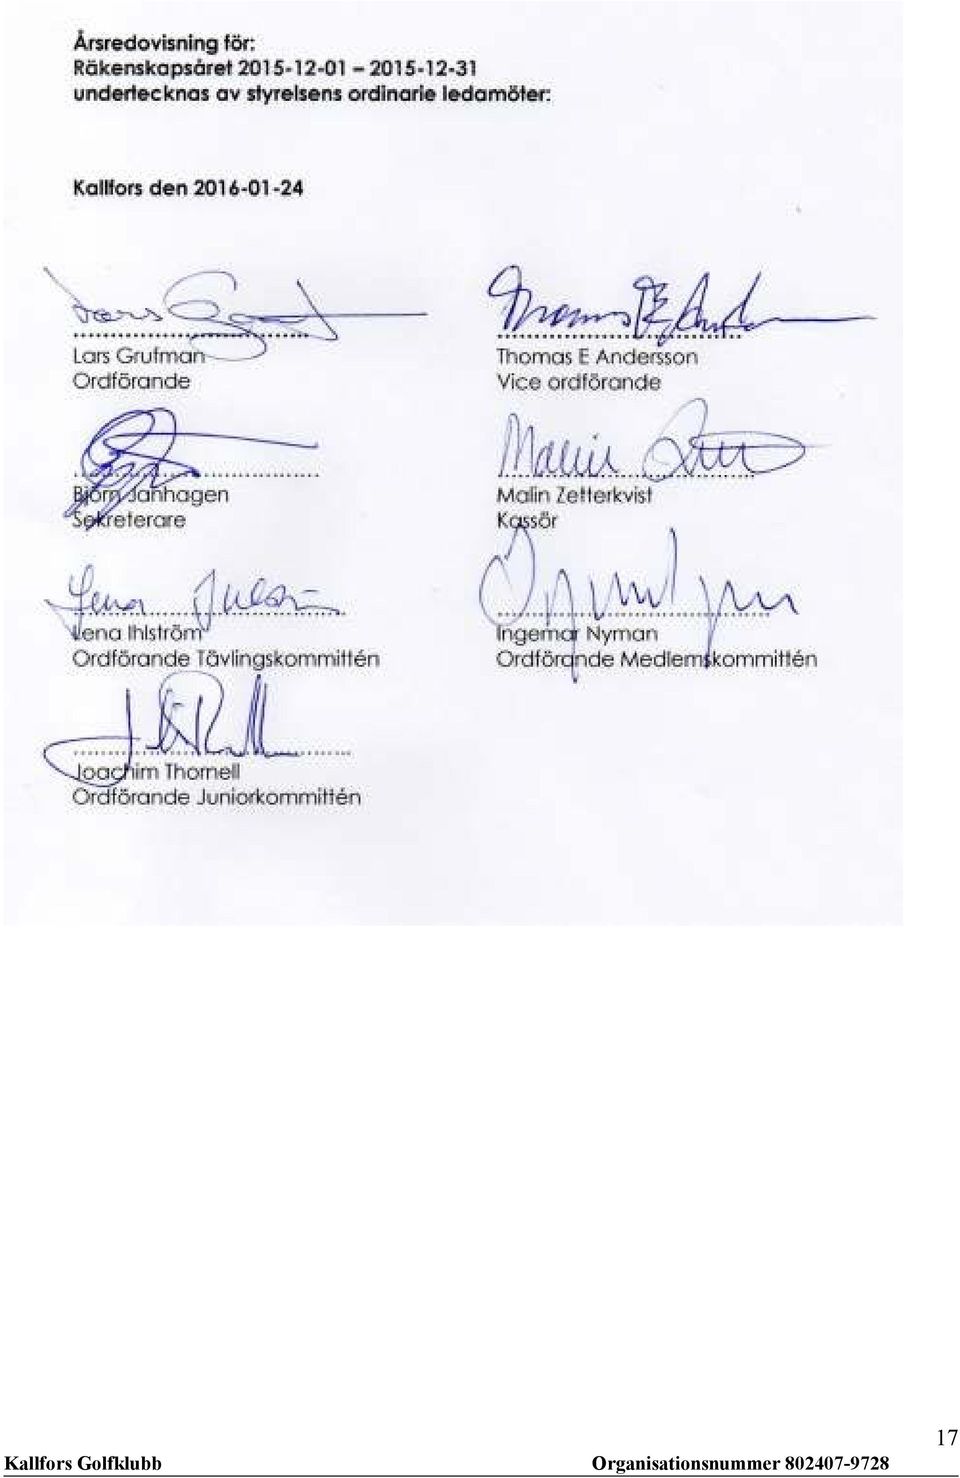 Årsredovisning för:
Räkenskapsåret 2015-12-01 – 2015-12-31
undertecknas av styrelsens ordinarie ledamöter:
Kallfors den 2016-01-24
Lars Grufman
Ordförande
Thomas E Andersson
Vice ordförande
Björn Janhagen
Sekreterare
Malin Zetterkvist
Kassör
Lena Ihlström
Ordförande Tävlingskommittén
Ingemar Nyman
Ordförande Medlemskommittén
Joachim Thornell
Ordförande Juniorkommittén
17
Kallfors Golfklubb Organisationsnummer 802407-9728